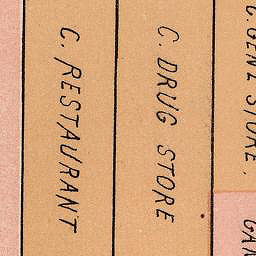 C. RESTAURANT
C. DRUG STORE
C. GEN'L STORE.